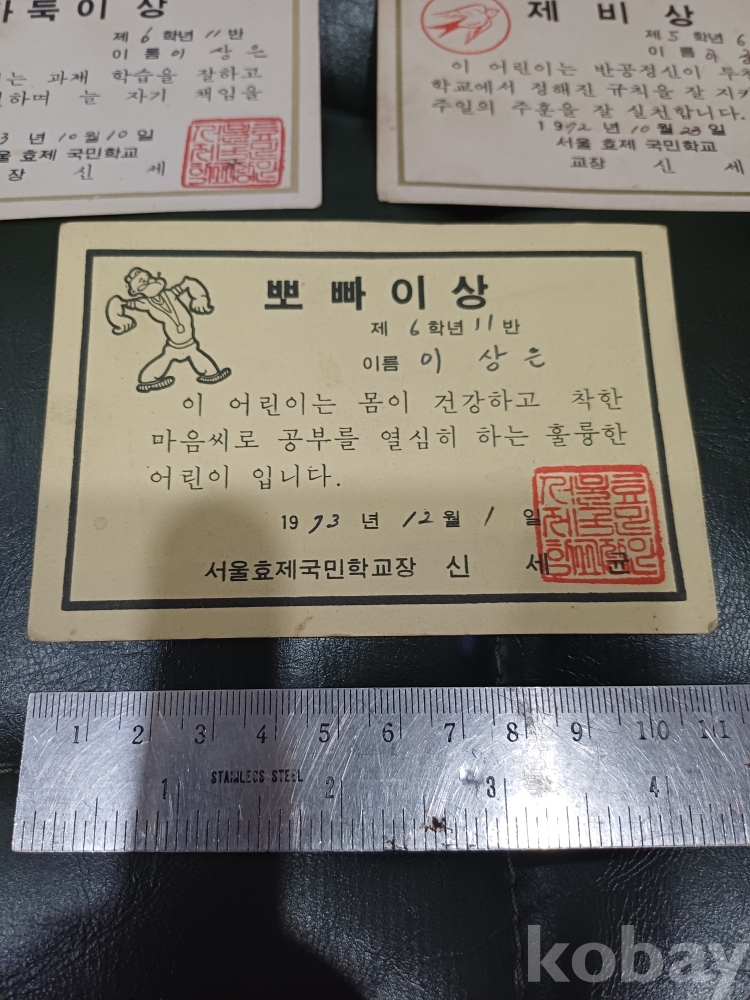 이상
제 6 학년 11 반
이 름 이 상 은
는 과제 학습을 잘하고
하며 늘 자기 책임을
3 년 10 월 10 일
울 효제 국민학교
장 신 세
제 비 상
제 5 학년 6
이 름
이 어린이는 반공정신이
학교에서 정해진 규칙을 잘
주일의 주훈을 잘 실천합니다.
1972 년 10 월 23 일
서울 효제 국민학교
교장 신 세
뽀 빠 이 상
제 6 학년 11 반
이름 이 상 은
이 어린이는 몸이 건강하고 착한
마음씨로 공부를 열심히 하는 훌륭한
어린이 입니다.
1973 년 12 월 1 일
서울효제국민학교장 신 세 균
1 2 3 4 5 6 7 8 9 10 11
STAINLESS STEEL
1 2 3 4
kobay